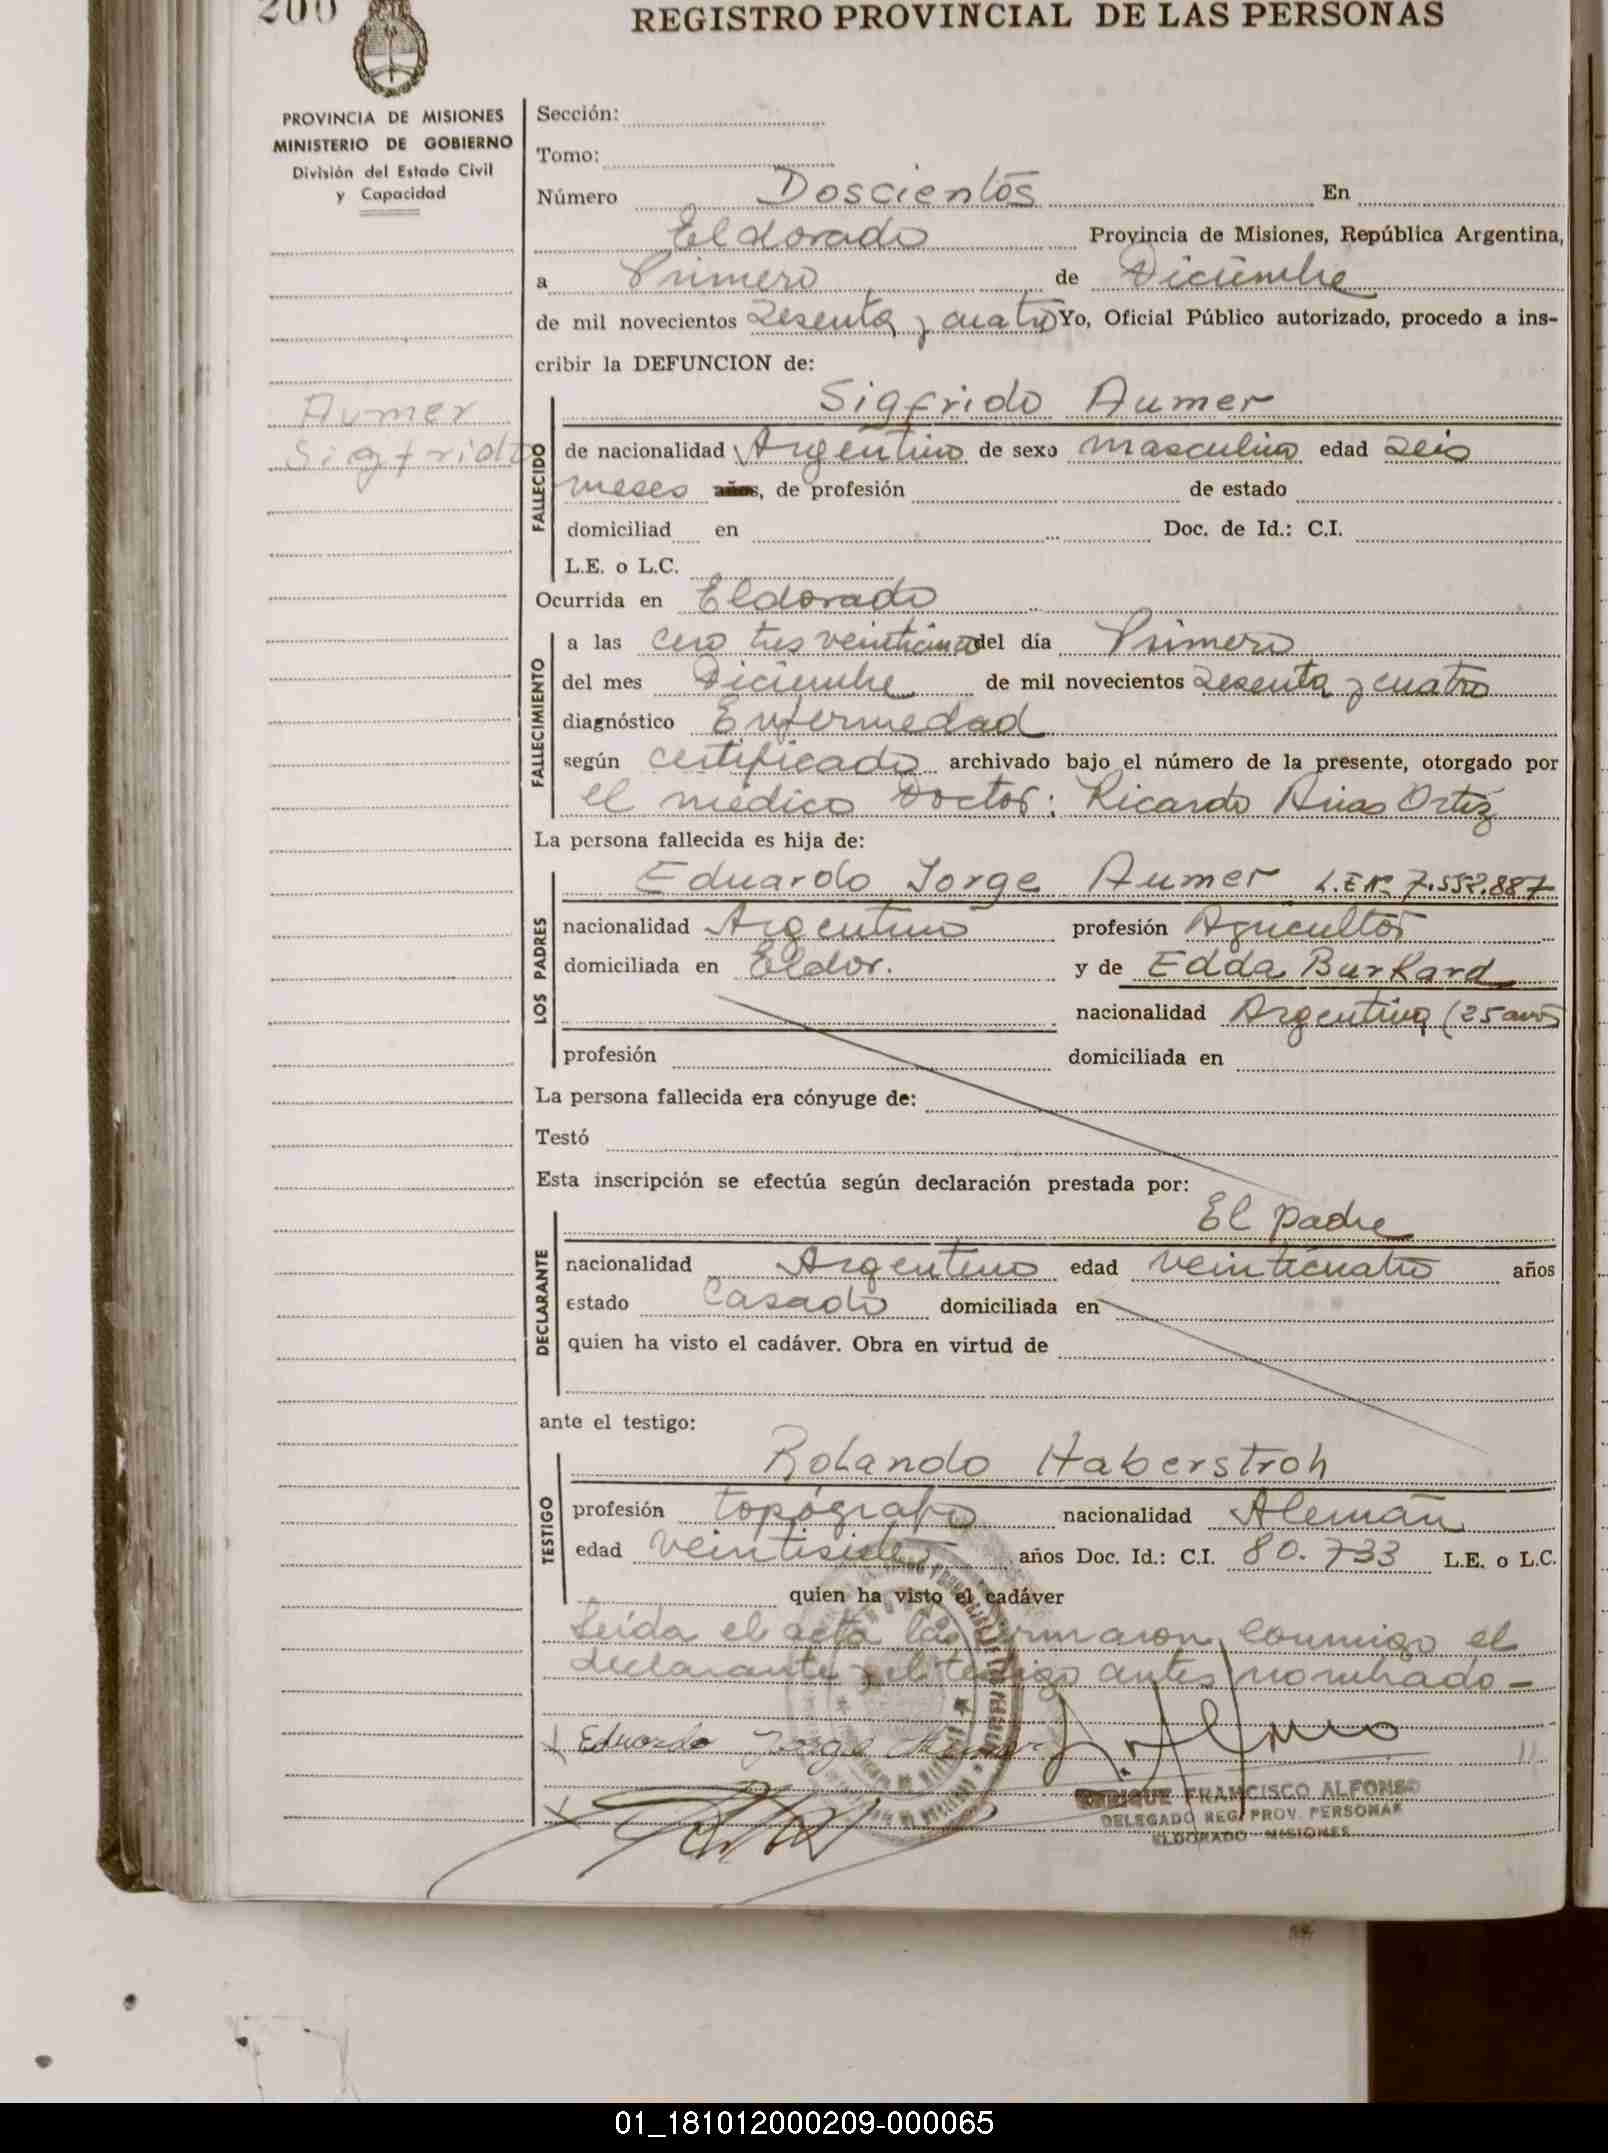 200
REGISTRO PROVINCIAL DE LAS PERSONAS
PROVINCIA DE MISIONES
MINISTERIO DE GOBIERNO
División del Estado Civil
y Capacidad
Aumer
Sigfrido
Sección:
Tomo:
Número Doscientos En
Eldorado Provincia de Misiones, República Argentina,
a Primero de Diciembre
de mil novecientos sesenta y cuatro Yo, Oficial Público autorizado, procedo a ins-
cribir la DEFUNCION de:
FALLECIDO
Sigfrido Aumer
de nacionalidad Argentino de sexo masculino edad seis
meses años, de profesión de estado
domiciliad en Doc. de Id.: C.I.
L.E. o L.C.
Ocurrida en Eldorado
FALLECIMIENTO
a las cero tres veinticinco del día Primero
del mes Diciembre de mil novecientos sesenta y cuatro
diagnóstico Enfermedad
según certificado archivado bajo el número de la presente, otorgado por
el médico Doctor: Ricardo Arias Ortiz
La persona fallecida es hija de:
LOS PADRES
Eduardo Jorge Aumer L.E.Nº 7.552.887
nacionalidad Argentino profesión Agricultor
domiciliada en Eldor. y de Edda Burkard
nacionalidad Argentina (25 años)
profesión domiciliada en
La persona fallecida era cónyuge de:
Testó
Esta inscripción se efectúa según declaración prestada por:
DECLARANTE
El padre
nacionalidad Argentino edad veinticuatro años
estado Casado domiciliada en
quien ha visto el cadáver. Obra en virtud de
ante el testigo:
TESTIGO
Rolando Haberstroh
profesión topógrafo nacionalidad Alemán
edad veintisiete años Doc. Id.: C.I. 80.733 L.E. o L.C.
quien ha visto el cadáver
Leída el acta la firmaron conmigo el
declarante y el testigo antes nombrado -
Eduardo Jorge Aumer
ENRIQUE FRANCISCO ALFONSO
DELEGADO REG. PROV. PERSONAS
ELDORADO MISIONES
01_181012000209-000065